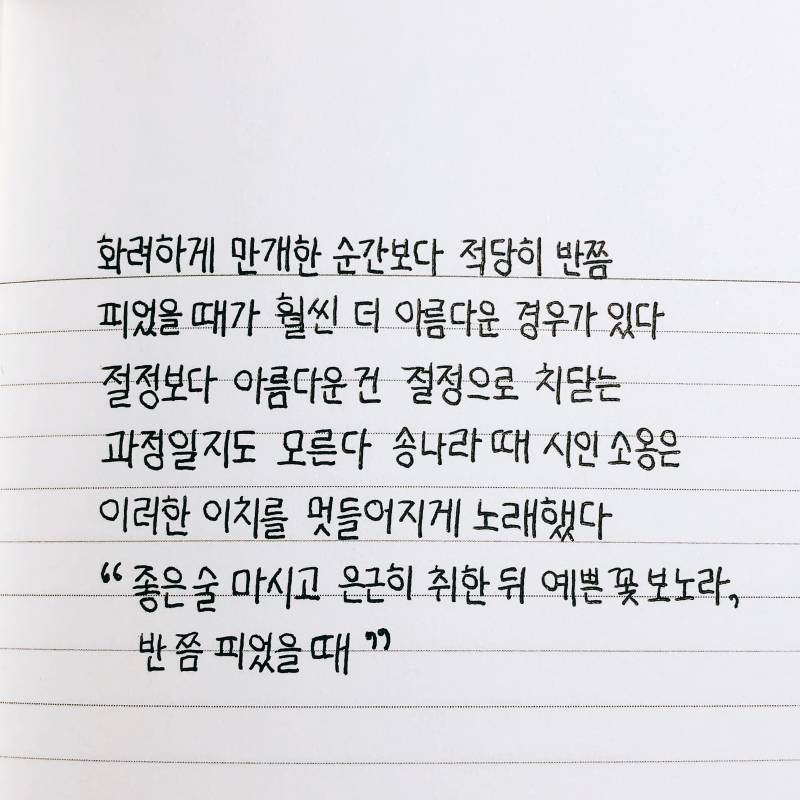 화려하게 만개한 순간보다 적당히 반쯤
피었을 때가 훨씬 더 아름다운 경우가 있다
절정보다 아름다운 건 절정으로 치닫는
과정일지도 모른다 송나라 때 시인 소옹은
이러한 이치를 멋들어지게 노래했다
“좋은 술 마시고 은근히 취한 뒤 예쁜 꽃 보노라,
반쯤 피었을 때”